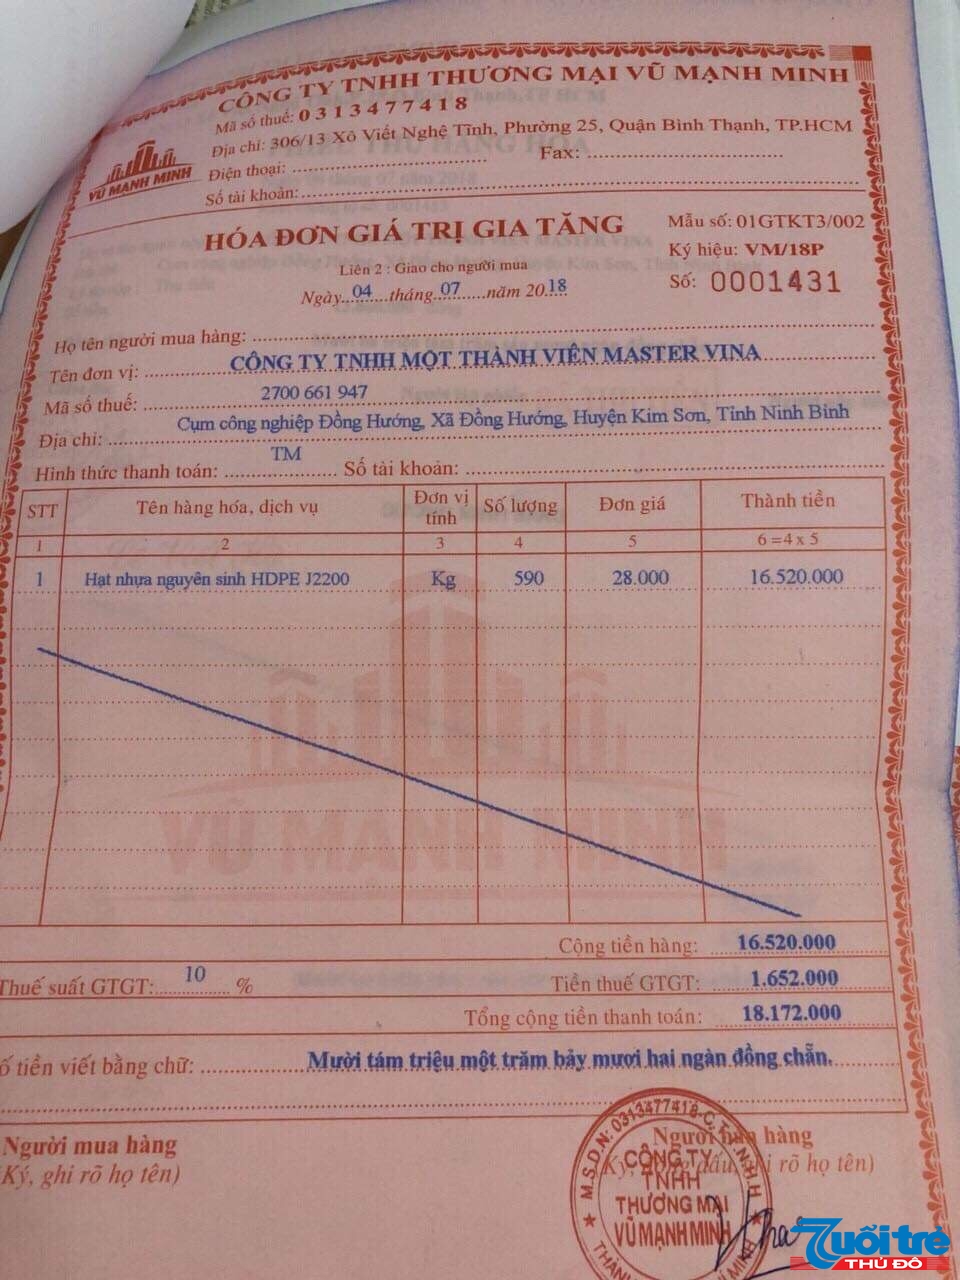 CÔNG TY TNHH THƯƠNG MẠI VŨ MẠNH MINH
Mã số thuế: 0313477418
Địa chỉ: 306/13 Xô Viết Nghệ Tĩnh, Phường 25, Quận Bình Thạnh, TP.HCM
Điện thoại: Fax:
Số tài khoản:
VŨ MẠNH MINH
HÓA ĐƠN GIÁ TRỊ GIA TĂNG
Liên 2 : Giao cho người mua
Ngày 04 tháng 07 năm 2018
Mẫu số: 01GTKT3/002
Ký hiệu: VM/18P
Số: 0001431
Họ tên người mua hàng:
Tên đơn vị: CÔNG TY TNHH MỘT THÀNH VIÊN MASTER VINA
Mã số thuế: 2700 661 947
Địa chỉ: Cụm công nghiệp Đồng Hướng, Xã Đồng Hướng, Huyện Kim Sơn, Tỉnh Ninh Bình
Hình thức thanh toán: TM Số tài khoản:
STT Tên hàng hóa, dịch vụ Đơn vị tính Số lượng Đơn giá Thành tiền
1 2 3 4 5 6 = 4 x 5
1 Hạt nhựa nguyên sinh HDPE J2200 Kg 590 28.000 16.520.000
VŨ MẠNH MINH
Cộng tiền hàng: 16.520.000
Thuế suất GTGT: 10 % Tiền thuế GTGT: 1.652.000
Tổng cộng tiền thanh toán: 18.172.000
ố tiền viết bằng chữ: Mười tám triệu một trăm bảy mươi hai ngàn đồng chẵn.
Người mua hàng
Ký, ghi rõ họ tên)
Người bán hàng
(Ký, đóng dấu, ghi rõ họ tên)
M.S.D.N: 0313477418-C.T.T.N.H.H
CÔNG TY
TNHH
THƯƠNG MẠI
VŨ MẠNH MINH
Tuổi trẻ
THỦ ĐÔ